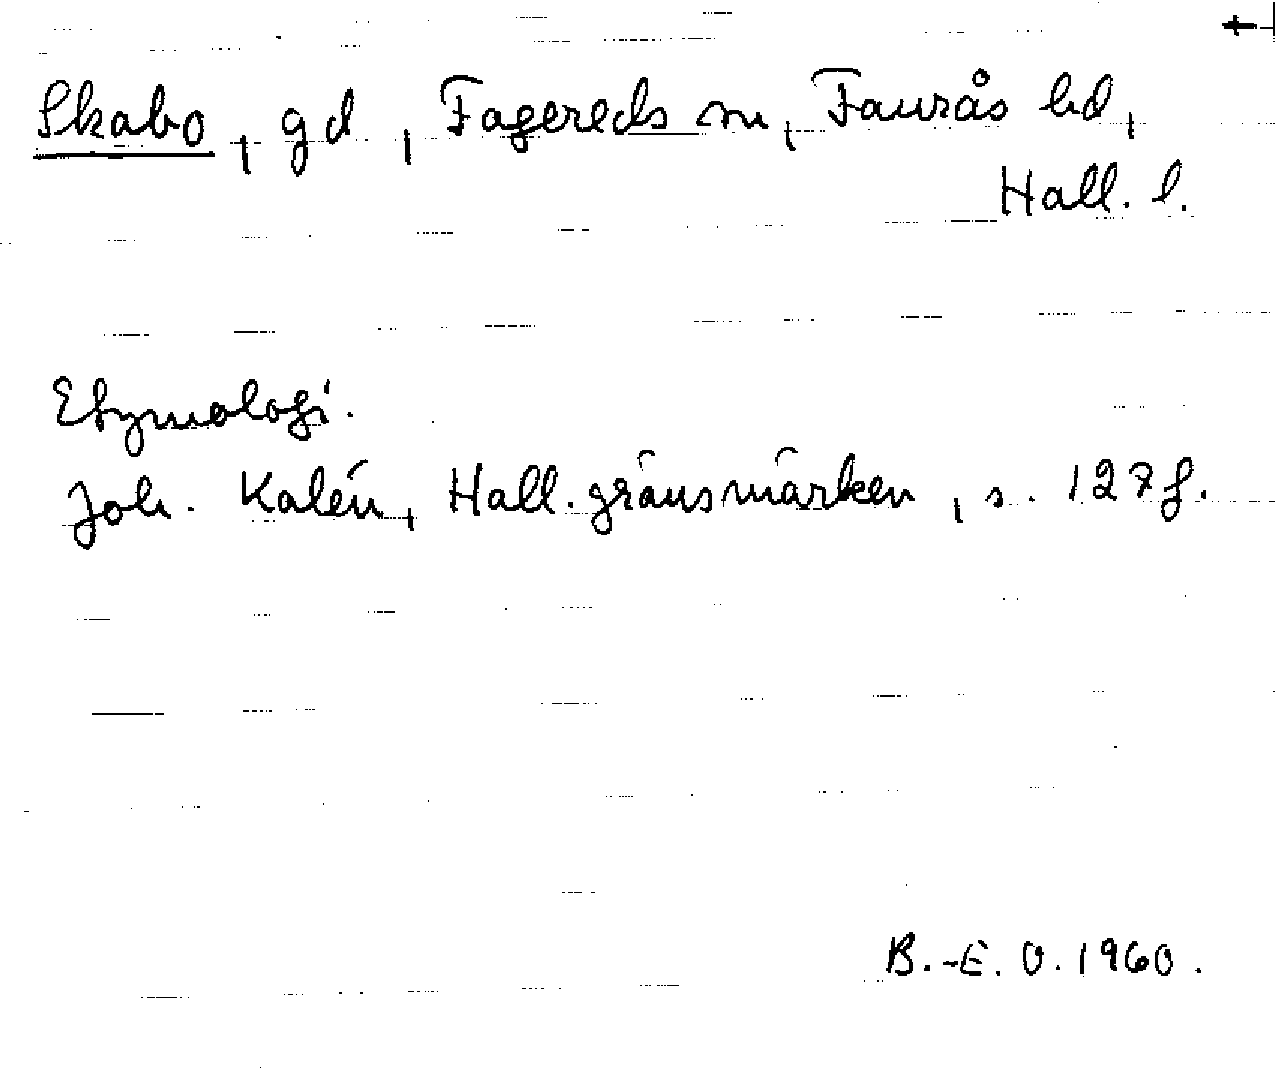 Skabo, gd, Fagereds sn, Faurås hd,
Hall. l.
Etymologi.
Joh. Kalén, Hall. gränsmärken, s. 127 f.
B.-E. O. 1960.